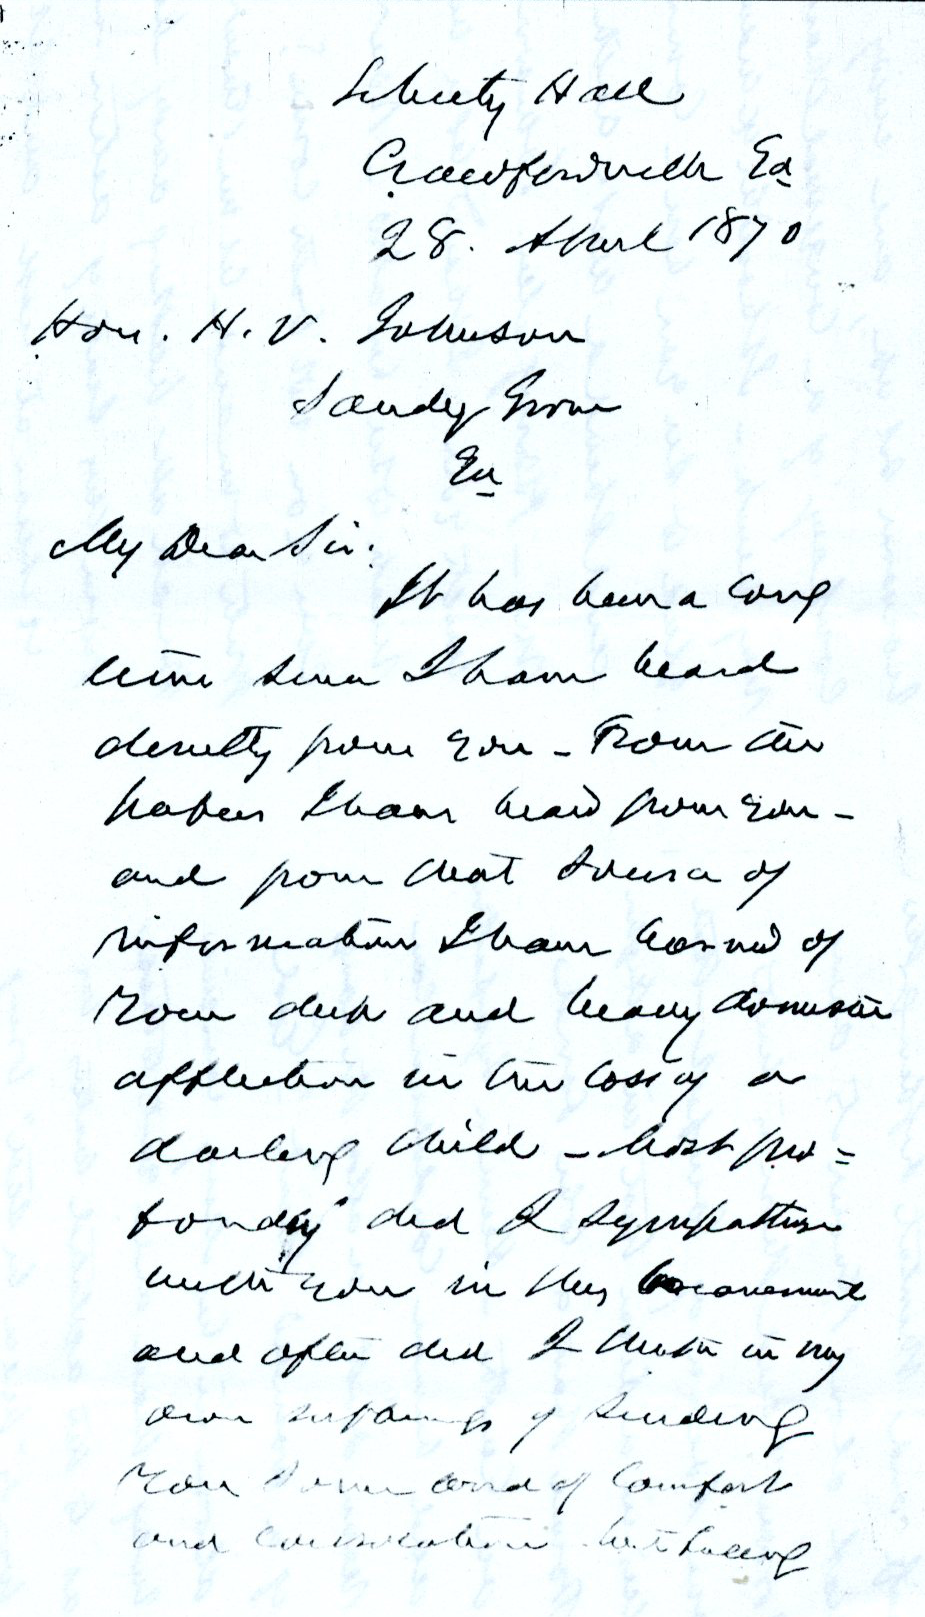 Liberty Hall
Crawfordville Ga
28. April 1870
Hon. H. V. Johnson
Sandy Grove
Ga
My Dear Sir:
It has been a long
time since I have heard
directly from you - From the
papers I have heard from you -
and from that source of
information I have learned of
your deep and heavy domestic
affliction in the loss of a
darling child - Most pro=
foundly did I sympathise
with you in this bereavement
and often did I think in my
own sufferings of sending
you some word of comfort
and consolation but